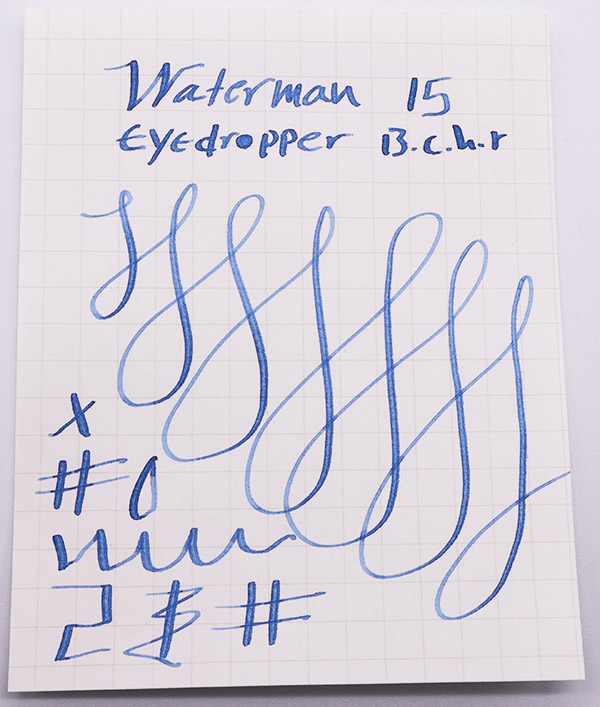 Waterman 15
Eyedropper B.c.h.r
x
# 0
2 $ #